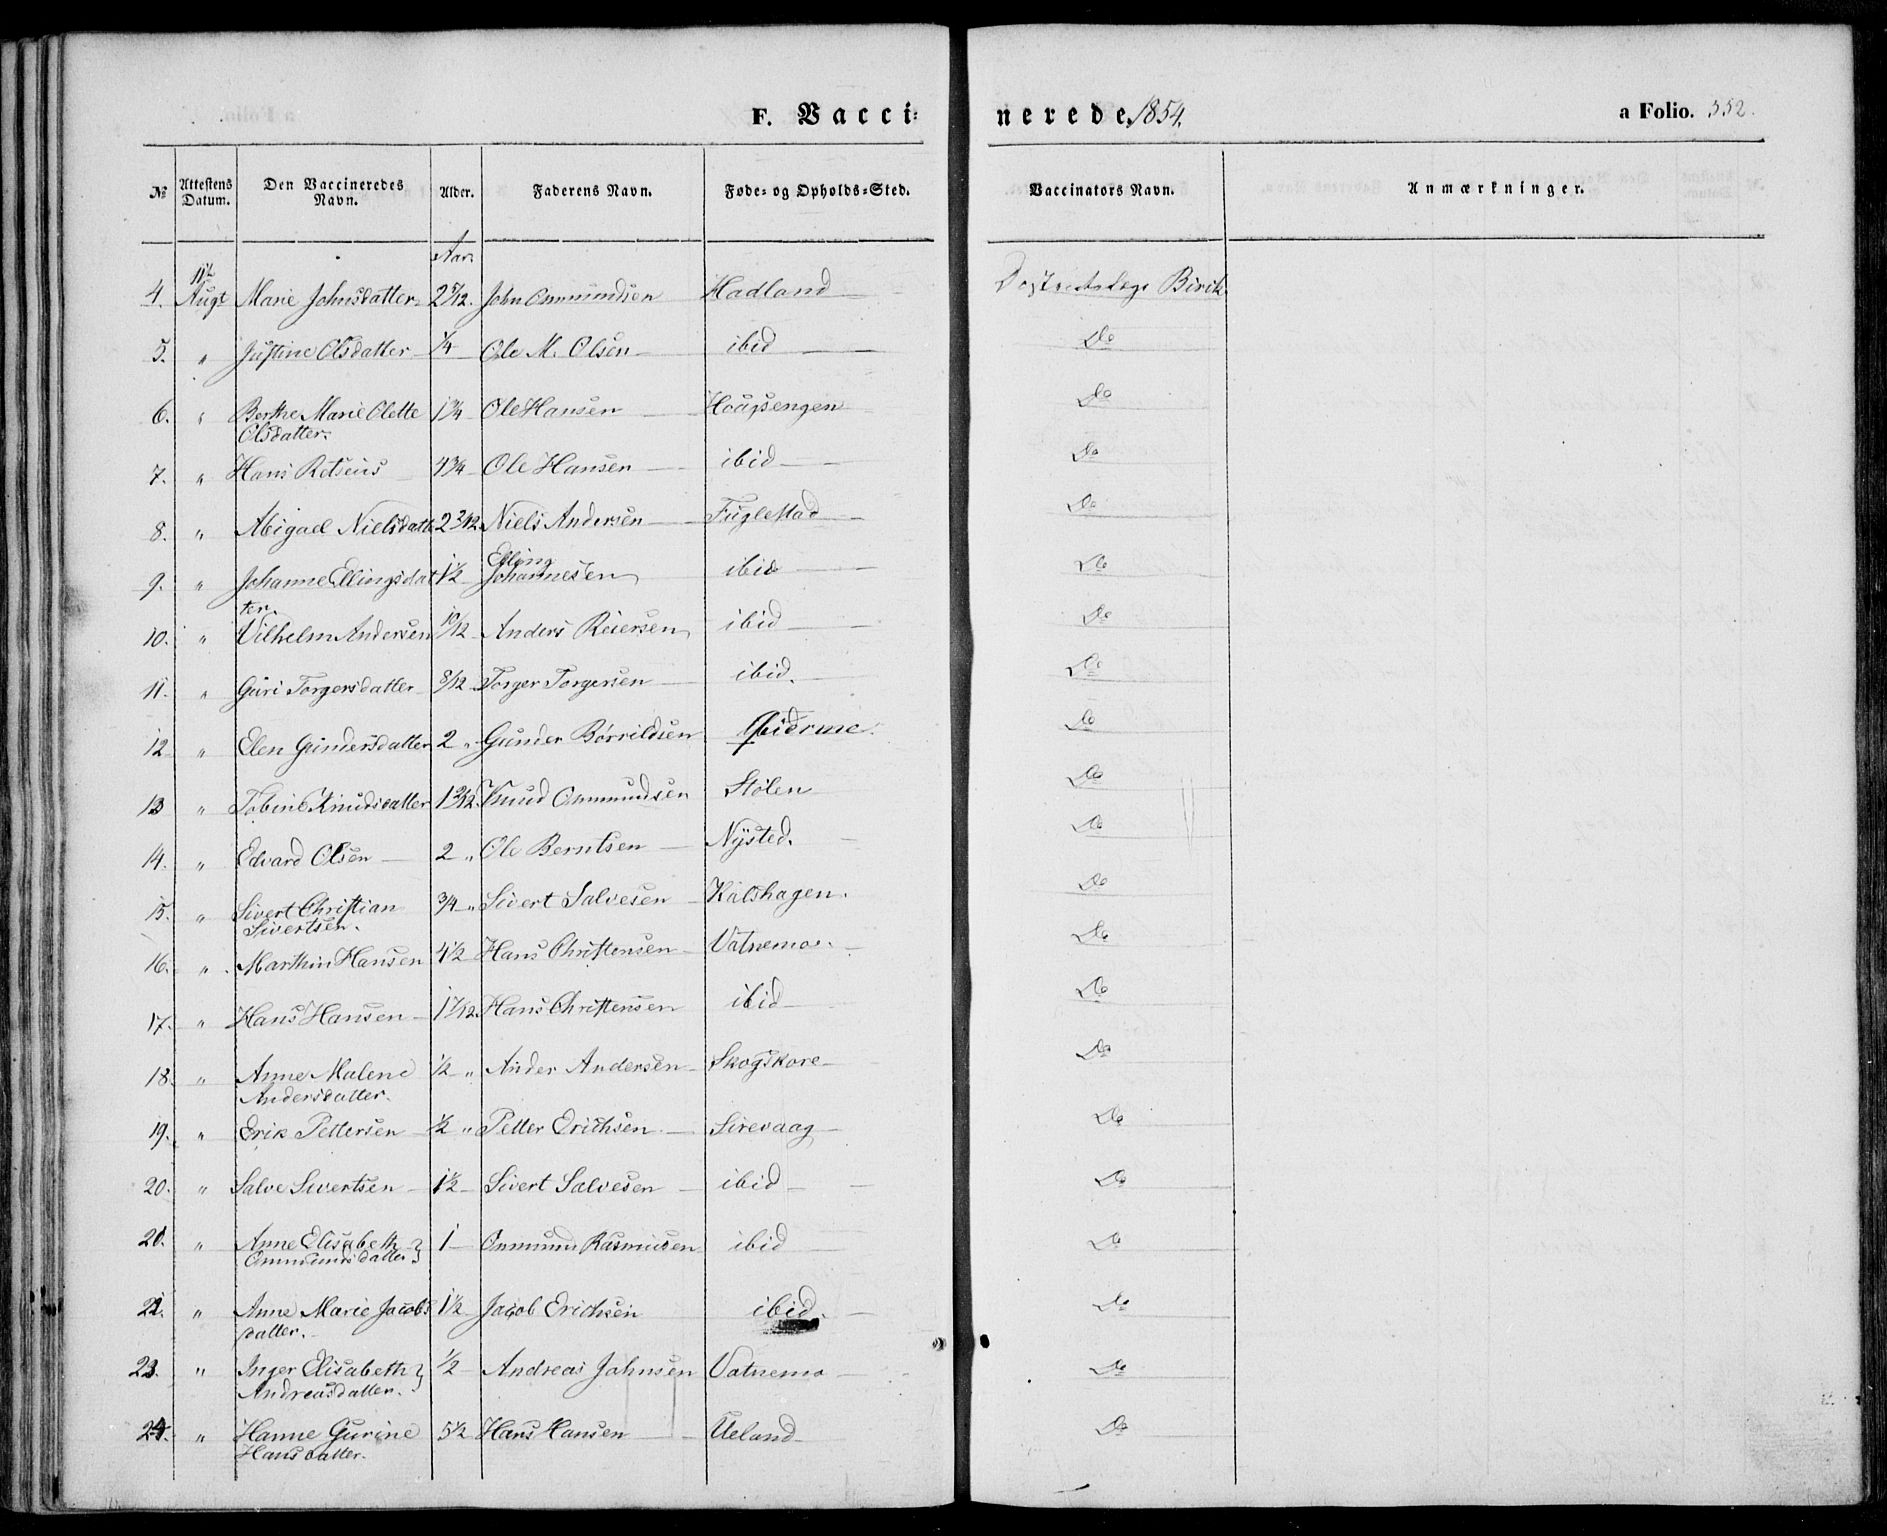 F. Vaccinerede. 1854. a Folio. 352.
No Attestens Datum. Den Vaccineredes Navn. Alder. Faderens Navn. Føde- og Opholds-Sted. Vaccinators Navn. Anmærkninger.
Aar.
4. 11te Augt Marie Johnsdatter 2 5/12. John Ommundsen Hadland Districtslæge Birch
5. " Justine Olsdatter 1/4 Ole M. Olsen ibid Do
6. " Berthe Marie Olette 1 3/4 Ole Hansen Haugsengen Do
Olsdatter.
7. " Hans Retseius 4 3/4 Ole Hansen ibid Do
8. " Abigael Nielsdatt 2 3/12 Niels Andersen Fuglestad Do
9. " Johanne Ellingsdat 1 1/2 Elling Johannesen ibid Do
ter.
10. " Vilhelm Andersen 10/12 Anders Reiersen ibid Do
11. " Guri Torgersdatter 8/12 Torger Torgersen ibid. Do
12 " Elen Gundersdatter 2 " Gunder Børrildsen Qvidrme. Do
13 " Tobine Knudsdatter 1 2/12. Knud Ommundsen Stølen Do
14. " Edvard Olsen 2 " Ole Berntsen Nysted. Do
15. " Sivert Christian 3/4 " Sivert Salvesen Kålshagen. Do
Sivertsen.
16. " Marthin Hansen 4 1/2 Hans Christensen Vatnemo. Do
17. " Hans Hansen 1 7/12. Hans Christensen ibid Do
18. " Anne Malene 1/2 " Ander Andersen Skogskore Do
Andersdatter.
19. " Erik Pettersen 1/2 " Petter Erichsen. Sirevaag Do
20. " Salve Sivertsen 1 1/2 Sivert Salvesen ibid Do
21. " Anne Elisabeth 1 Ommund Rasmusen ibid Do
Ommundsdatter
22. " Anne Marie Jacobs 1 1/2 Jacob Erichsen ibid. Do
datter.
23. " Inger Elisabeth 1/2 Andreas Johnsen Vatnemo Do
Andreasdatter.
24. " Hanne Gurine 5 1/2 Hans Hansen Ueland Do
Hansdatter.